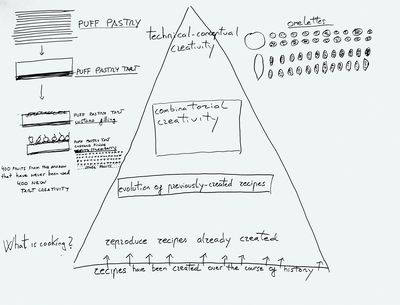 PUFF PASTRY
PUFF PASTRY TART
PUFF PASTRY TART
custard filling
PUFF PASTRY TART
CUSTARD FILLING
WITH STRAWBERRIES
400 FRUITS FROM THE AMAZON
that have never been used
400 NEW
TART CREATIVITY
What is cooking?
technical-conceptual
creativity
combinatorial
creativity
evolution of previously-created recipes
reproduce recipes already created
recipes have been created over the curse of history
omelettes